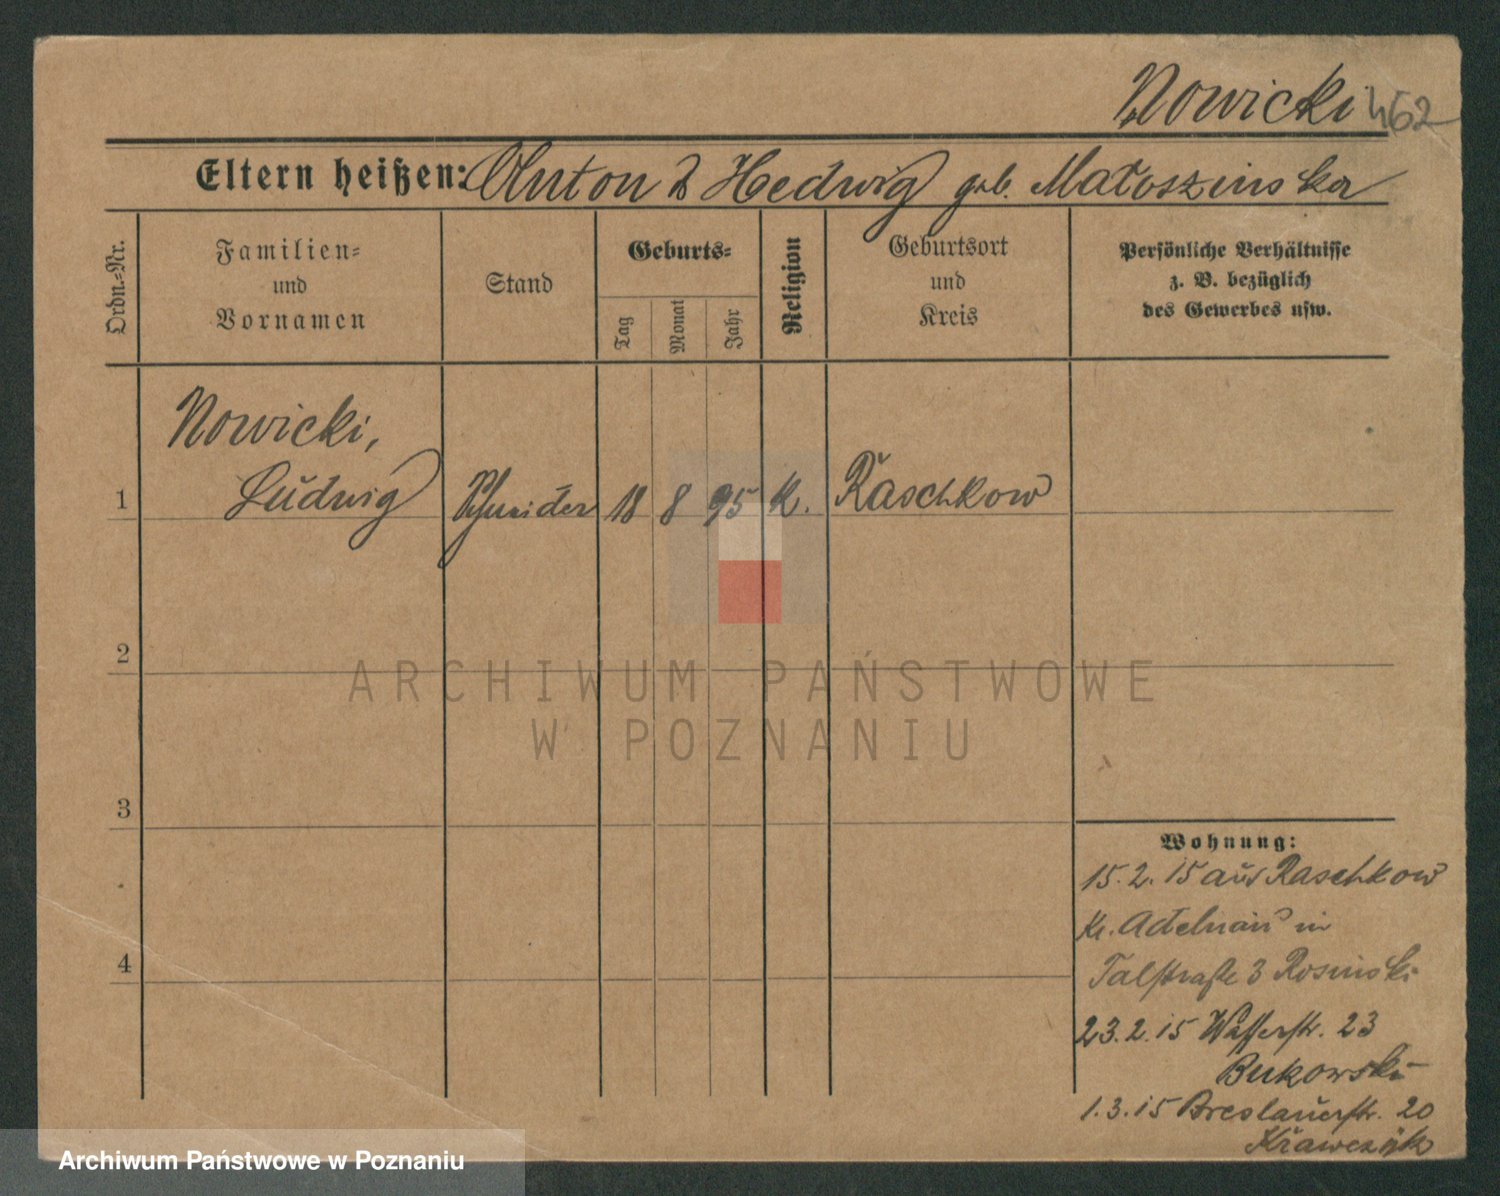 Nowicki 462
Eltern heißen: Anton & Hedwig geb. Matoszinska
Ordn.-Nr.
Familien-
und
Vornamen
Stand
Geburts-
Tag
Monat
Jahr
Religion
Geburtsort
und
Kreis
Persönliche Verhältnisse
z. B. bezüglich
des Gewerbes usw.
Nowicki,
1 Ludwig Schneider 18 8 95 K. Raschkow
2
3
4
Wohnung:
15.2.15 aus Raschkow
Kr. Adelnau in
Talstraße 3 Rosinski
23.2.15 Wasserstr. 23
Bukowski
1.3.15 Breslauerstr. 20
Krawczyk
ARCHIWUM PAŃSTWOWE
W POZNANIU
Archiwum Państwowe w Poznaniu